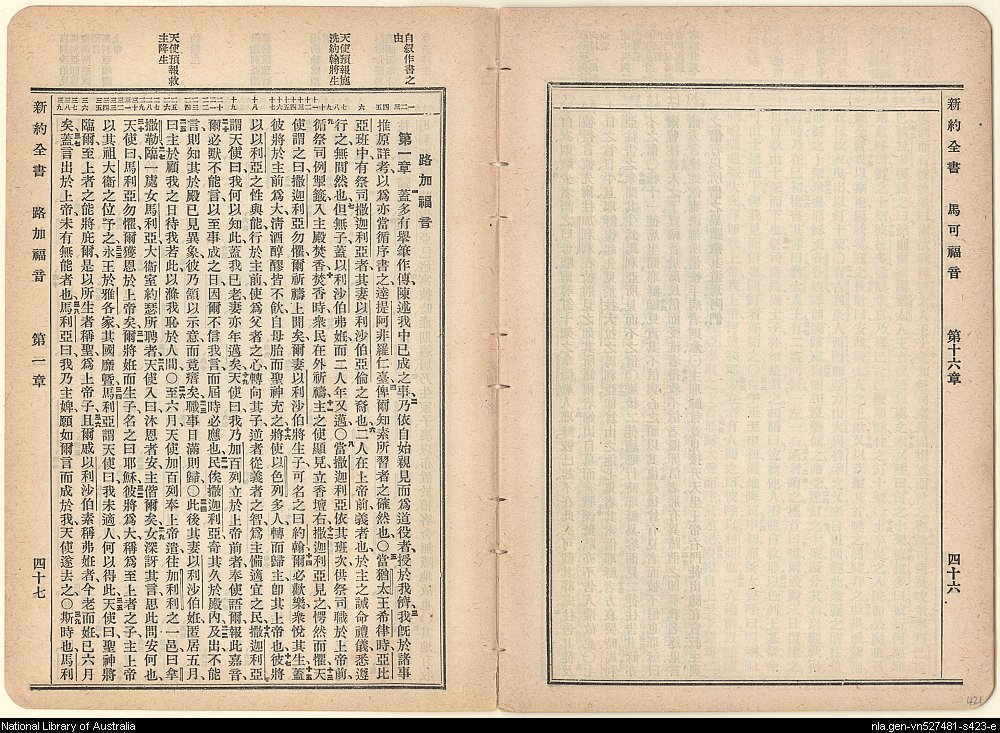 新約全書　馬可福音　第十六章　四十六
自叙作書之
由
天使預報施
洗約翰將生
天使預報救
主降生
路加福音
第一章　蓋多有舉筆作傳陳述我中已成之事乃依自始親見而爲道役者授於我儕我旣於諸事
推原詳考以爲亦當循序書之達提阿非羅仁臺俾爾知素所習者之確然也〇當猶太王希律時亞比
亞班中有祭司撒迦利亞者其妻以利沙伯亞倫之裔也二人在上帝前義者也於主之誡命禮儀悉遵
行之無間然也但無子蓋以利沙伯弗姙而二人年又邁〇當撒迦利亞依其班次供祭司職於上帝前
循祭司例掣籤入主殿焚香焚香時衆民在外祈禱主之使顯見立香壇右撒迦利亞見之愕然而懼天
使謂之曰撒迦利亞勿懼爾祈禱上聞矣爾妻以利沙伯將生子可名之曰約翰爾必歡樂衆悅其生蓋
彼將於主前爲大淸酒醇醪皆不飮自母胎而聖神充之將使以色列多人轉而歸主卽其上帝也彼將
以以利亞之性與能行於主前使爲父者之心轉向其子逆者從義者之智爲主備適宜之民撒迦利亞
謂天使曰我何以知此蓋我已老妻亦年邁矣天使曰我乃加百列立於上帝前者奉使語爾報此嘉音
爾必默不能言以至事成之日因爾不信我言而屆時必應也民俟撒迦利亞奇其久於殿內及出不能
言則知其於殿已見異象彼乃頷以示意而竟瘖矣職事日滿則歸〇此後其妻以利沙伯姙匿居五月
曰主於顧我之日待我若此以滌我恥於人間〇至六月天使加百列奉上帝遣往加利利之一邑曰拿
撒勒臨一處女馬利亞大衞室約瑟所聘者天使入曰沐恩者安主偕爾矣女深訝其言思此問安何也
天使曰馬利亞勿懼爾獲恩於上帝矣爾將姙而生子名之曰耶穌彼將爲大稱爲至上者之子主上帝
以其祖大衞之位予之永王於雅各家其國靡暨馬利亞謂天使曰我未適人何以得此天使曰聖神將
臨爾至上者之能將庇爾是以所生者稱聖爲上帝子且爾戚以利沙伯素稱弗姙者今老而姙已六月
矣蓋言出於上帝未有無能者也馬利亞曰我乃主婢願如爾言而成於我天使遂去之〇斯時也馬利
新約全書　路加福音　第一章　四十七
421
National Library of Australia
nla.gen-vn527481-s423-e